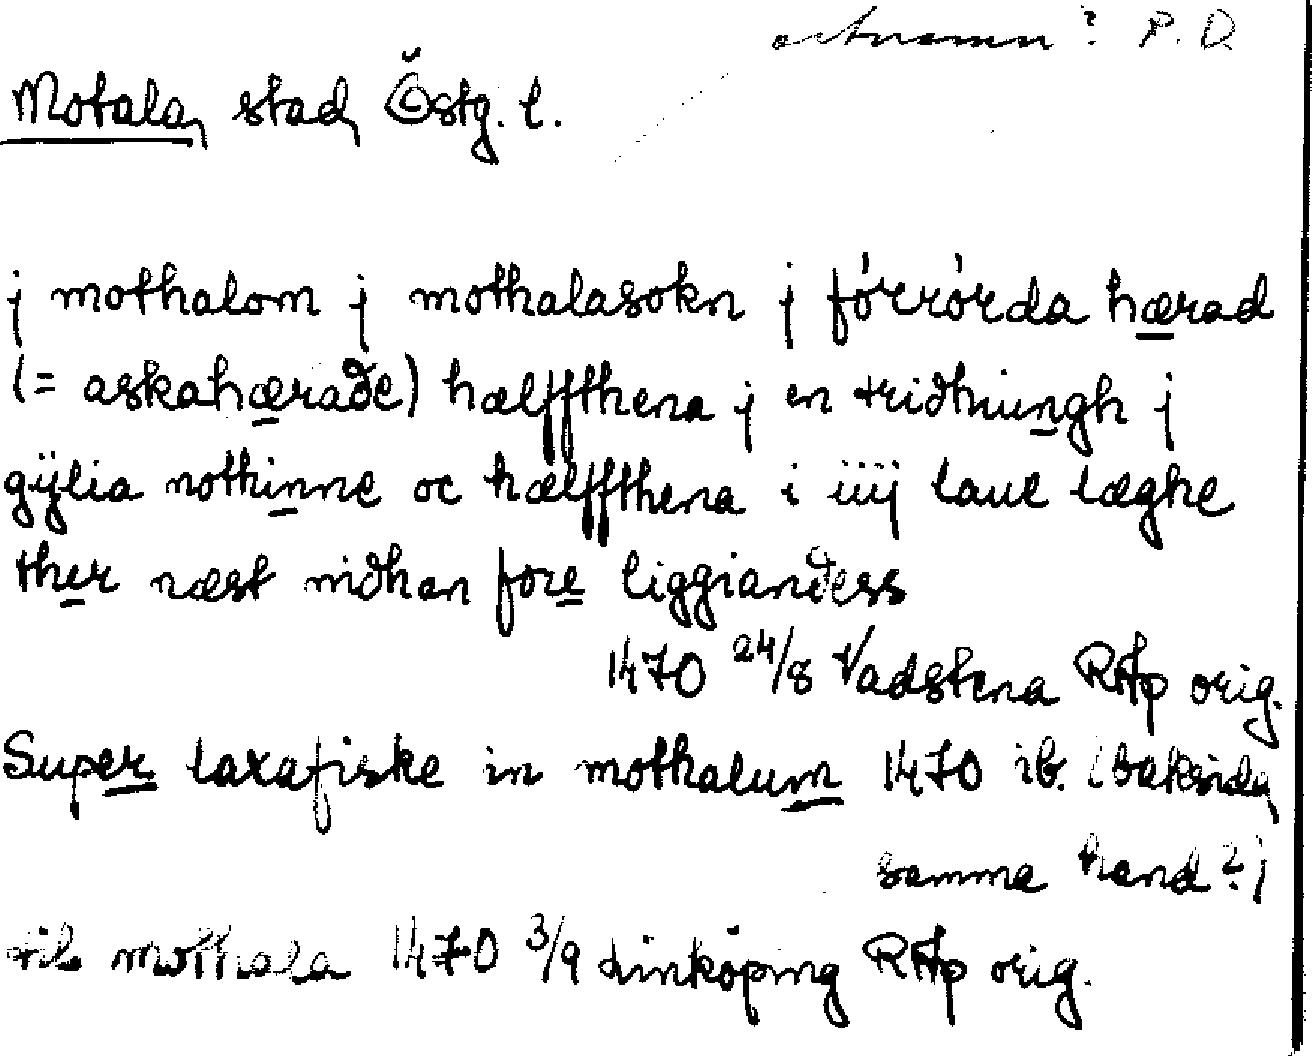 ortnamn? P.D.
Motala, stad, Östg. l.
j mothalom j mothalasokn j fórrórda hærad
(= askahæraðe) hælffthena j en triðhiungh j
gÿlia nothinne oc hælffthena i iiij laue læghe
ther næst niðhan fore liggiandess
1470 24/8 Vadstena RAp orig.
Super laxafiske in mothalum 1470 ib. (baksida,
samma hand?)
til mothala 1470 3/9 Linköping RAp orig.